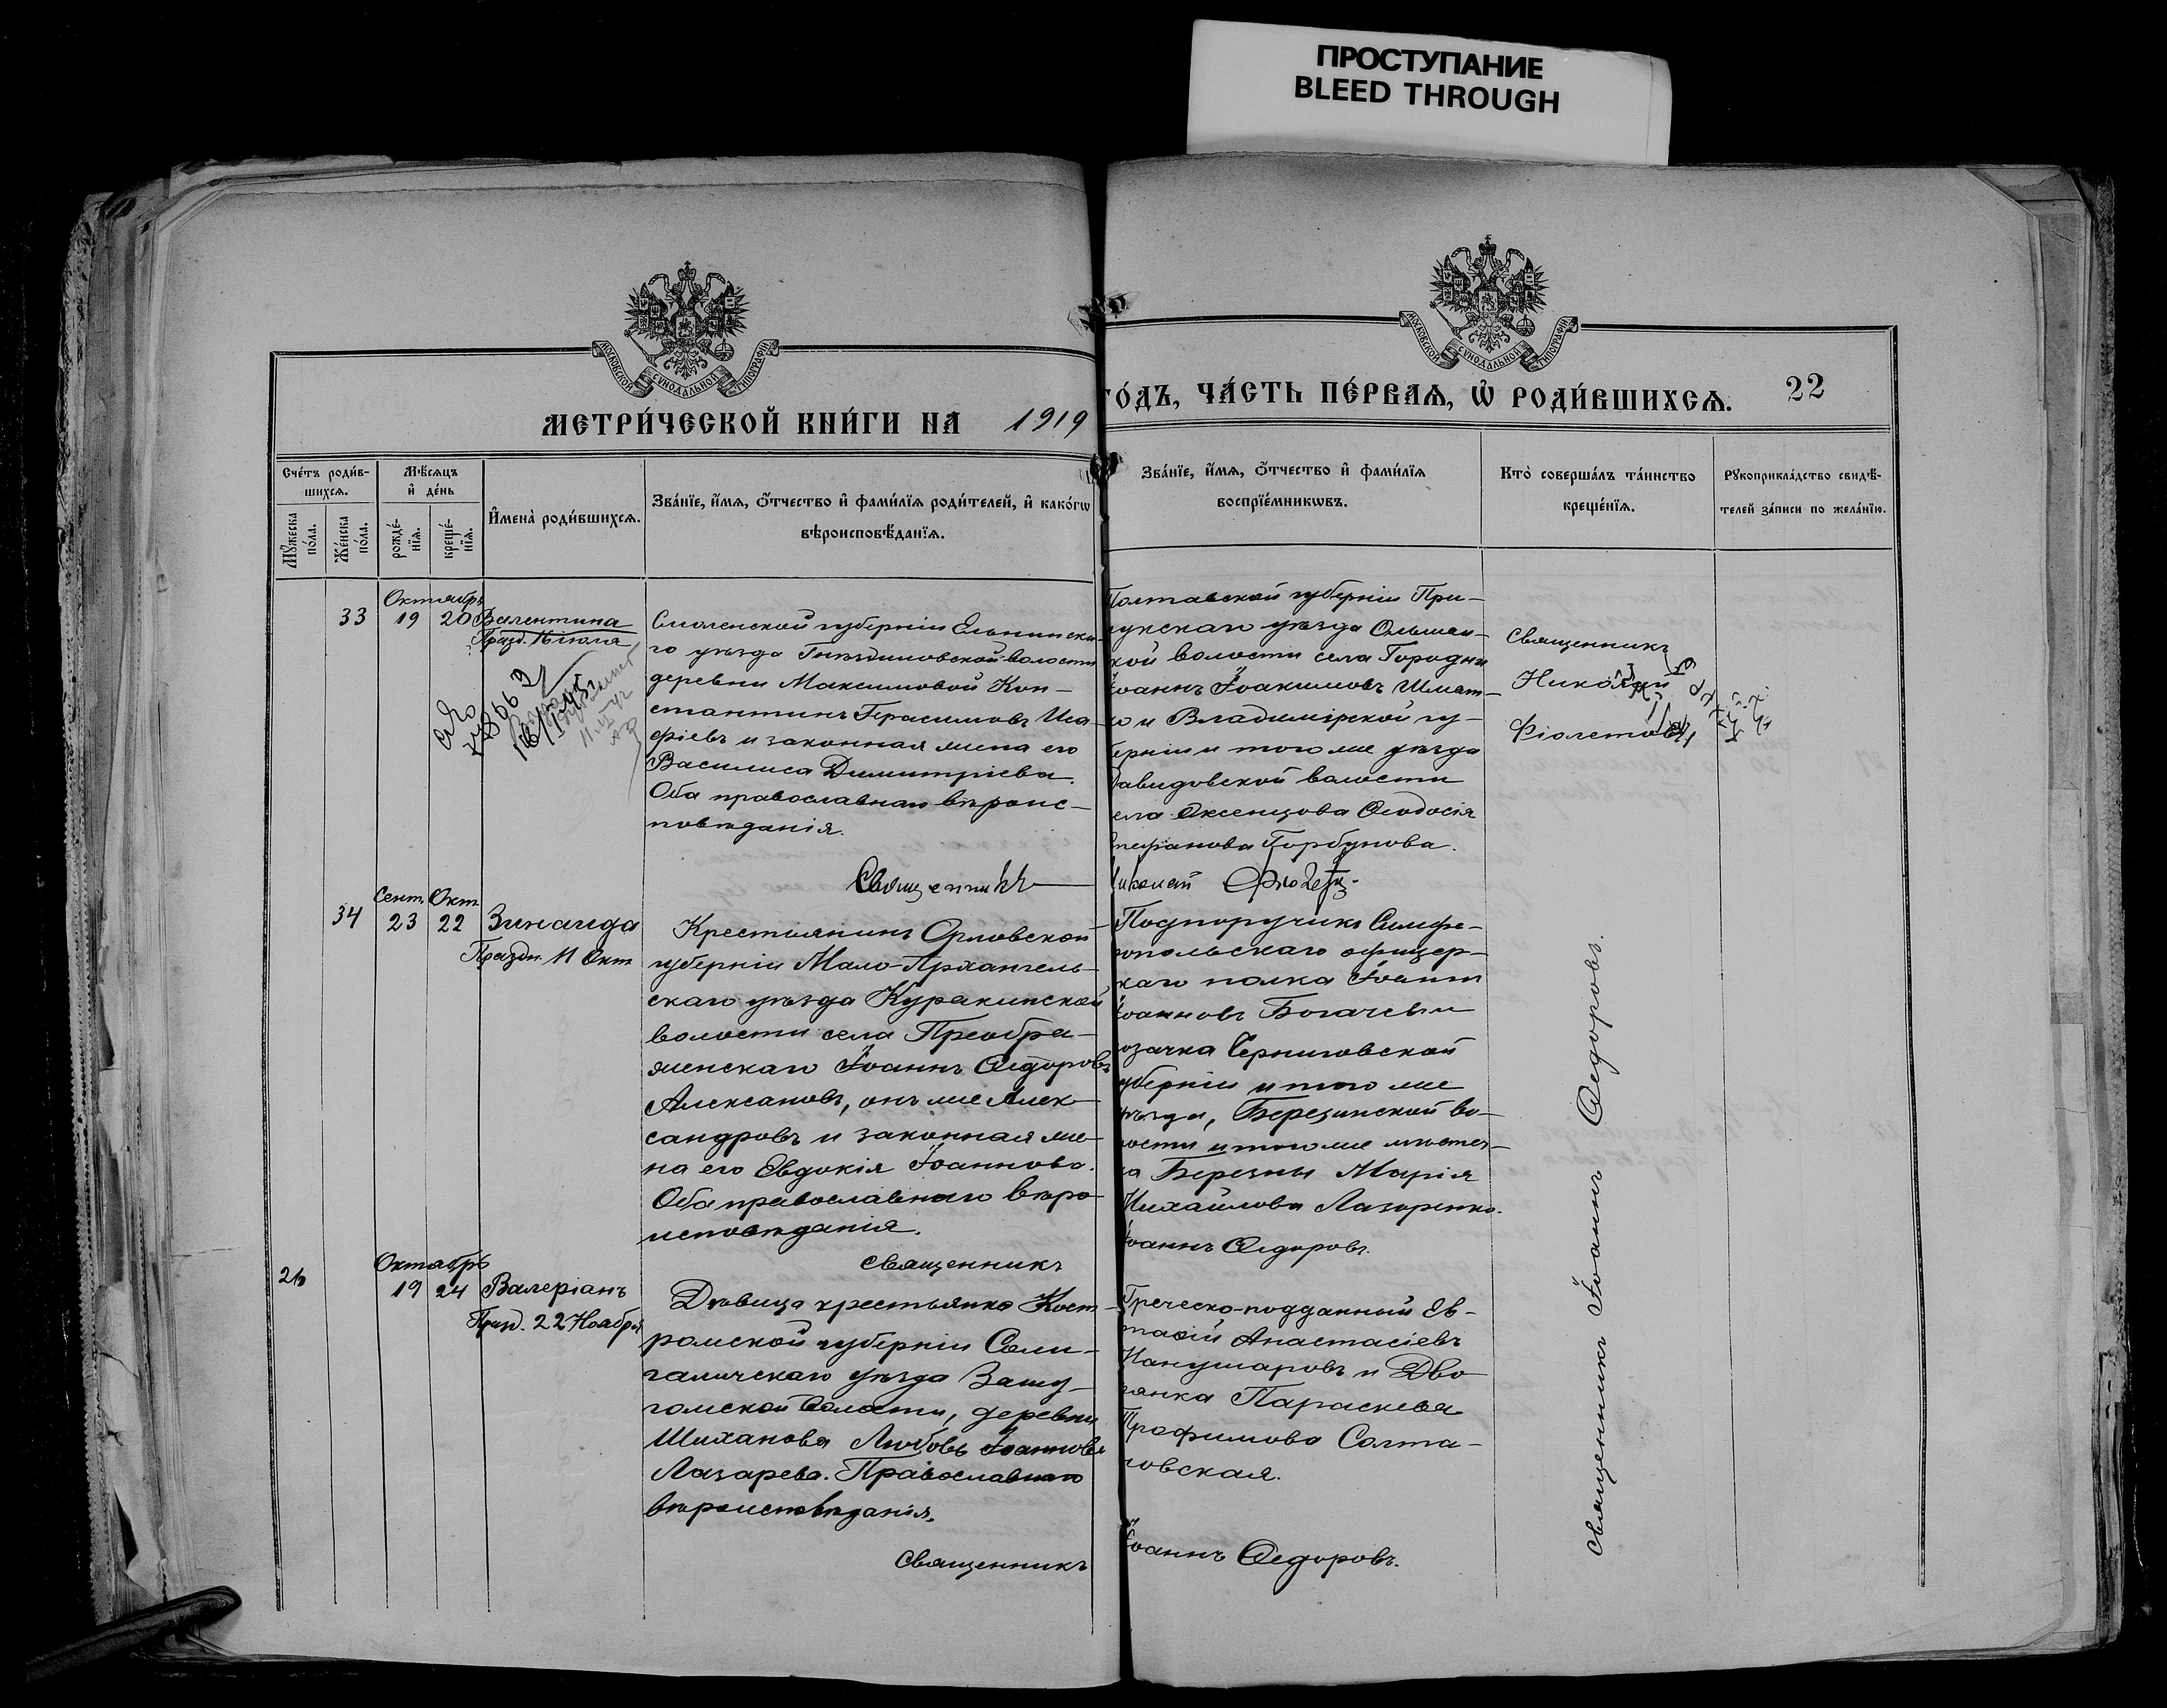 ПРОСТУПАНИЕ
BLEED THROUGH
МОСКОВСКОЙ СѴНОДАЛЬНОЙ ТИПОГРАФІИ
МОСКОВСКОЙ СѴНОДАЛЬНОЙ ТИПОГРАФІИ
МЕТРИ́ЧЕСКОЙ КНИ́ГИ НА 1919
ГО́ДЪ, ЧА́СТЬ ПЕ́РВАѦ, Ѽ РОДИ́ВШИХСѦ. 22
Сче́тъ роди́в-
шихсѧ.
Мꙋ́жеска по́ла.
Же́нска по́ла.
Мѣ́сѧцъ
и҆ де́нь
рожде́-
нїѧ.
креще́-
нїѧ.
И҆мена̀ роди́вшихсѧ.
Зва́нїе, и҆́мѧ, ѻ҆́тчество и҆ фами́лїѧ роди́телей, и҆ како́гѡ
вѣроисповѣ́данїѧ.
Зва́нїе, и҆́мѧ, ѻ҆́тчество и҆ фами́лїѧ
воспрїе́мникѡвъ.
Кто̀ соверша́лъ та́инство
креще́нїѧ.
Рꙋкоприкла́дство свидѣ́-
телей за́писи по жела́нїю.
Октябрь
33 19 20 Валентина
Празд. 16 іюля
Смоленской губерніи Ельнинска-
го уѣзда Гнѣздиловской волости
деревни Максимовой Кон-
стантинъ Герасимовъ
и законная жена его
Василиса Димитріева.
Оба православнаго вѣроис-
повѣданія.
Священникъ
Полтавской губерніи При-
лукскаго уѣзда Ольшан-
ской волости села Городни
Іоаннъ Іоакимовъ Шмат-
ко и Владимірской гу-
берніи того же уѣзда
Давидовской волости
села Аксенцова Ѳеодосія
Горбунова.
Николай
Священникъ
Николай
Фіолетовъ
Сент. Окт.
34 23 22 Зинаида
Праздн. 11 Окт
Крестьянинъ Орловской
губерніи Мало-Архангель-
скаго уѣзда Куракинской
волости села Преобра-
женскаго Іоаннъ Ѳедоровъ
Алексановъ, онъ же Алек-
сандровъ и законная же-
на его Евдокія Іоаннова.
Оба православнаго вѣро-
исповѣданія.
Священникъ
Подпоручикъ Симфе-
ропольскаго офицер-
скаго полка Іоаннъ
Іоанновъ Богачевъ и
козачка Черниговской
губерніи и того же
уѣзда, Березинской во-
лости и того же мѣстеч-
ка Березны Марія
Михайлова Лазоренко.
Іоаннъ Ѳедоровъ.
Октябрь
26 19 24 Валеріанъ
Празд. 22 Ноября
Дѣвица крестьянка Кост-
ромской губерніи Соли-
галичскаго уѣзда Зашу-
гомской волости, деревни
Шиханова Любовь Іоаннова
Лазарева. Православнаго
вѣроисповѣданія.
Священникъ
Греческо-подданный Ев-
стафій Анастасіевъ
и Дво-
рянка Параскева
Трофимова Солта-
новская.
Іоаннъ Ѳедоровъ.
Священникъ Іоаннъ Ѳедоровъ.